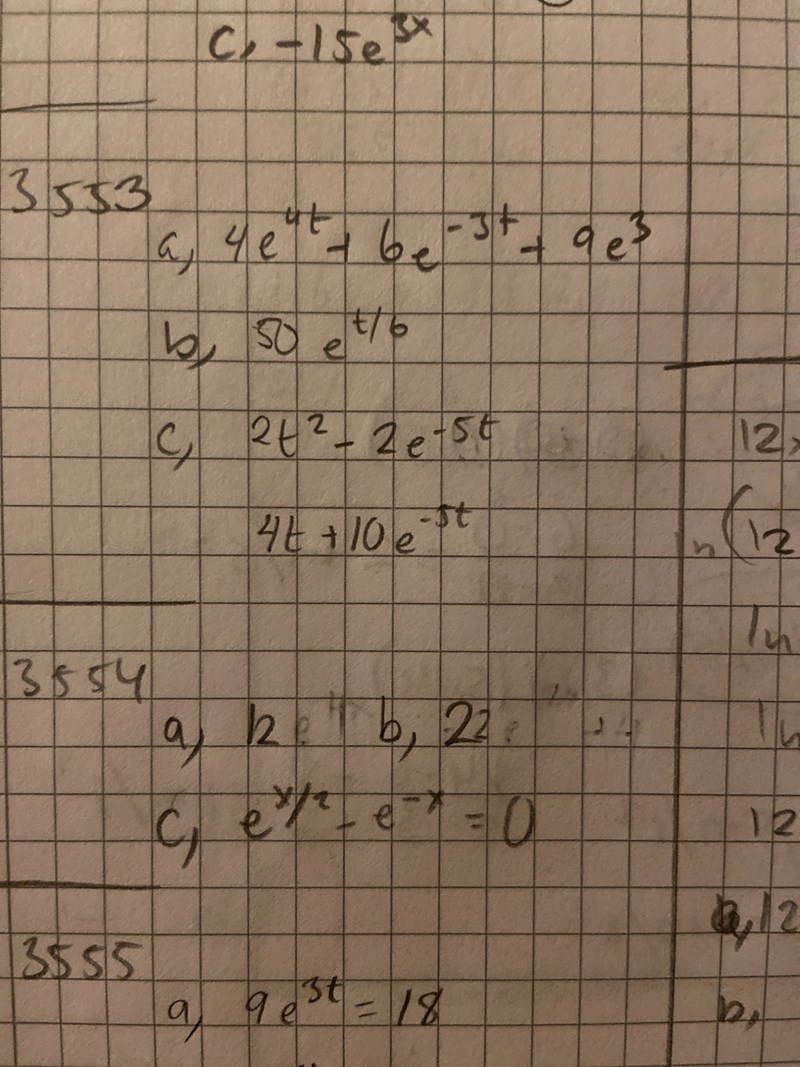 c, -15e^3x
3553
a, 4e^4t + 6e^-3t + 9e^3
b, 50 e^t/6
c, 2t² - 2e^-5t
4t + 10e^-5t
3554
a, 12 b, 22
c, e^x/2 - e^-x = 0
3555
a, 9e^3t = 18
12
ln(12
ln
ln
12
a, 12
b,